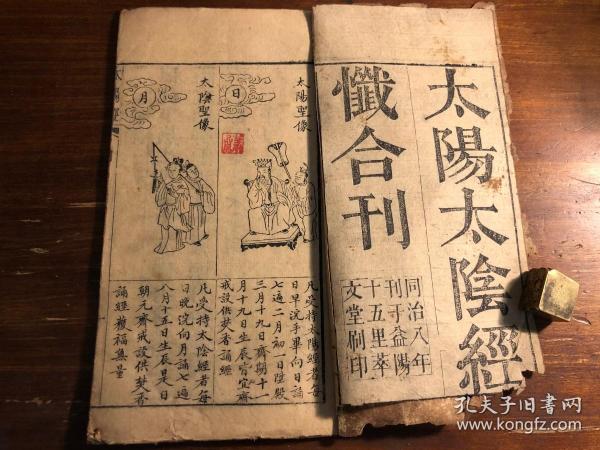 太陽太陰經
懺合刊
同治八年
刊于益陽
十五里萃
文堂刷印
太陽聖像
日
太陰聖像
月
凡受持太陽經者每
日早洗手畢向日誦
七遍二月初一日陞殿
三月十九日齋期十一
月十九日生辰皆宜齋
戒設供焚香誦經
凡受持太陰經者每
日晚浣向月誦七遍
八月十五日生辰是日
朝元齋戒設供焚香
誦經獲福無量
孔夫子旧书网
www.kongfz.com